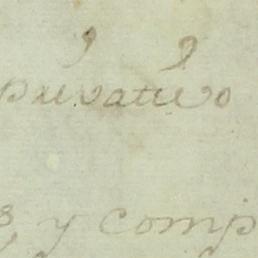 privativo
s, y comp